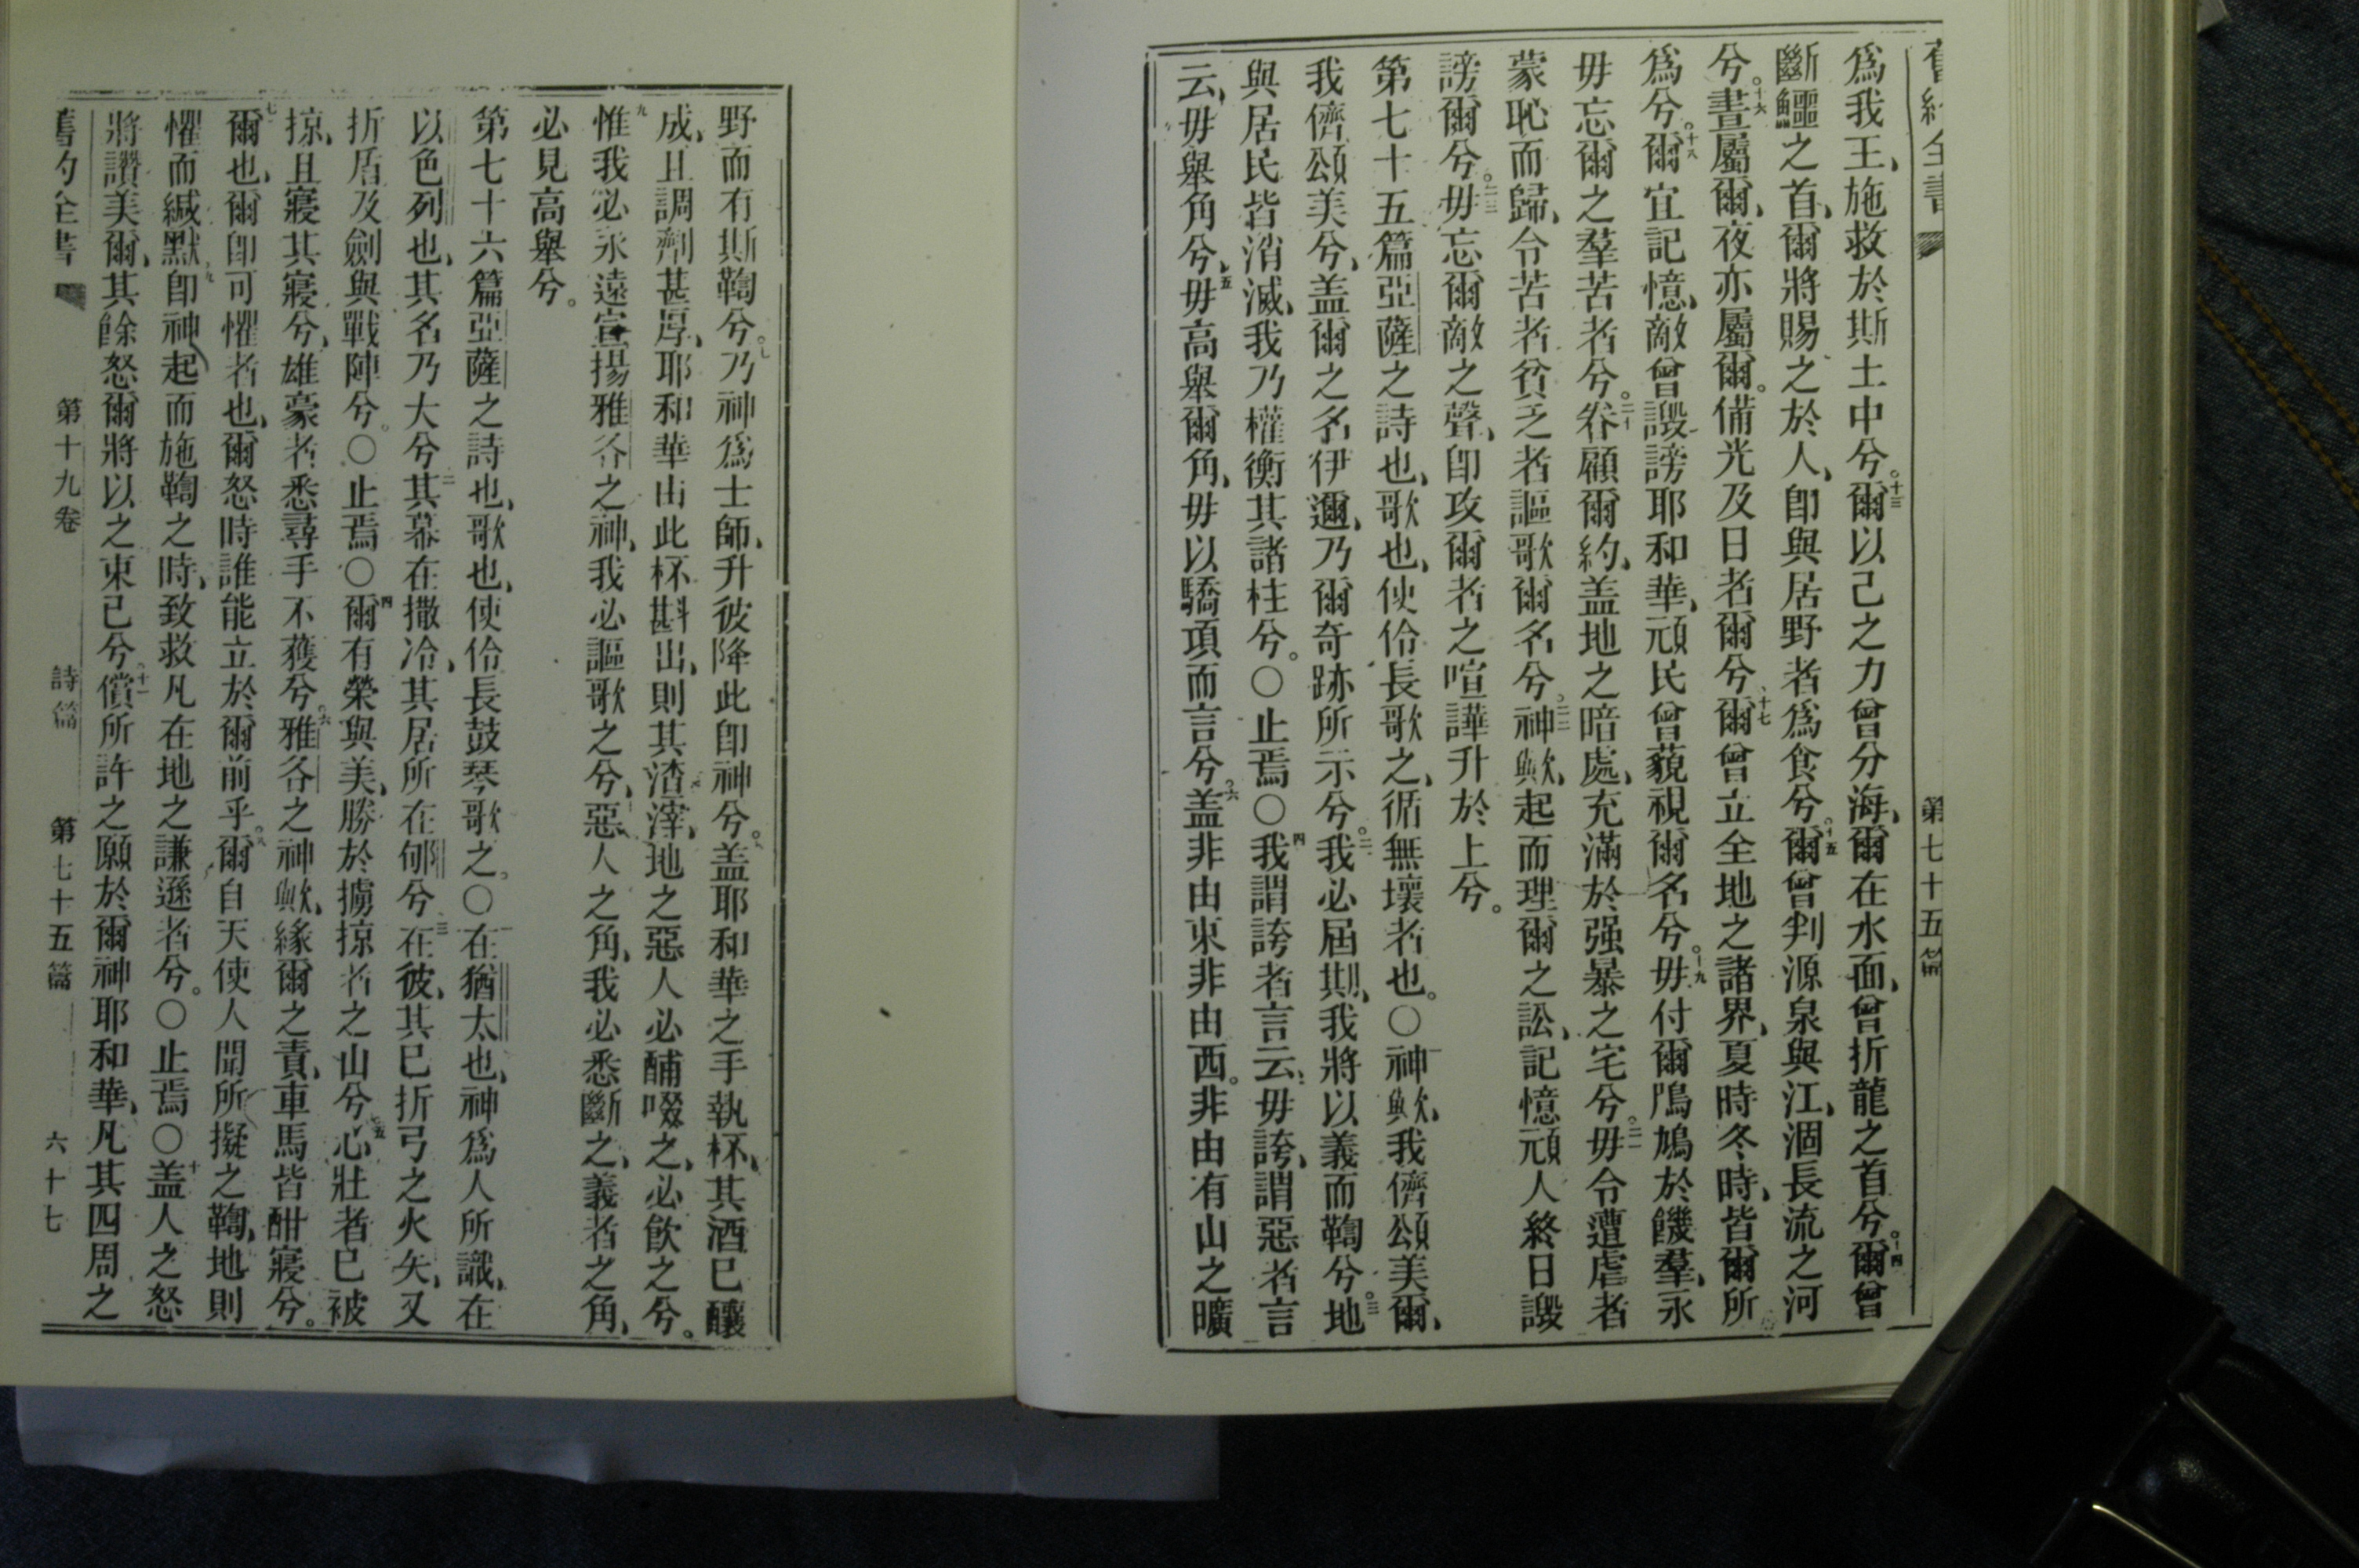 舊約全書 第七十五篇
爲我王、施救於斯土中兮。十三爾以己之力曾分海、爾在水面、曾折龍之首兮。十四爾曾
斷鱷之首、爾將賜之於人、卽與居野者爲食兮。十五爾曾判源泉與江、涸長流之河
兮。十六晝屬爾、夜亦屬爾。備光及日者爾兮、十七爾曾立全地之諸界、夏時冬時、皆爾所
爲兮。十八爾宜記憶、敵曾譭謗耶和華、頑民曾藐視爾名兮。十九毋付爾鳲鳩於饑羣、永
毋忘爾之羣苦者兮。二十眷顧爾約、盖地之暗處、充滿於强暴之宅兮。二一毋令遭虐者
蒙恥而歸、令苦者貧乏者謳歌爾名兮。二二神歟、起而理爾之訟、記憶頑人終日譭
謗爾兮。二三毋忘爾敵之聲、卽攻爾者之喧譁升於上兮。
第七十五篇亞薩之詩也、歌也、使伶長歌之、循無壞者也。〇神歟、我儕頌美爾、
我儕頌美兮、盖爾之名伊邇、乃爾奇跡所示兮。二我必屆期、我將以義而鞫兮。三地
與居民皆消滅、我乃權衡其諸柱兮。〇止焉〇四我謂誇者言云、毋誇、謂惡者言
云、毋舉角兮、五毋高舉爾角、毋以驕項而言兮。六盖非由東非由西。非由有山之曠
野而有斯鞫兮。七乃神爲士師、升彼降此卽神兮。八盖耶和華之手執杯、其酒已釀
成、且調劑甚厚、耶和華由此杯斟出、則其渣滓、地之惡人必酺啜之、必飮之兮。
九惟我必永遠宣揚雅各之神、我必謳歌之兮、十惡人之角、我必悉斷之、義者之角、
必見高舉兮。
第七十六篇亞薩之詩也、歌也、使伶長鼓琴歌之。〇在猶太也、神爲人所識、在
以色列也、其名乃大兮、二其幕在撒冷、其居所在郇兮、三在彼、其已折弓之火矢、又
折盾及劍與戰陣兮。〇止焉〇四爾有榮與美、勝於擄掠者之山兮。五心壯者已被
掠、且寢其寢兮、雄豪者悉尋手不獲兮。六雅各之神歟、緣爾之責、車馬皆酣寢兮。
七爾也、爾卽可懼者也、爾怒時誰能立於爾前乎。八爾自天使人聞所擬之鞫、地則
懼而緘默、九卽神起而施鞫之時、致救凡在地之謙遜者兮。〇止焉〇十盖人之怒
將讚美爾、其餘怒爾將以之束已兮。十一償所許之願於爾神耶和華、凡其四周之
舊約全書 第十九卷 詩篇 第七十五篇 六十七